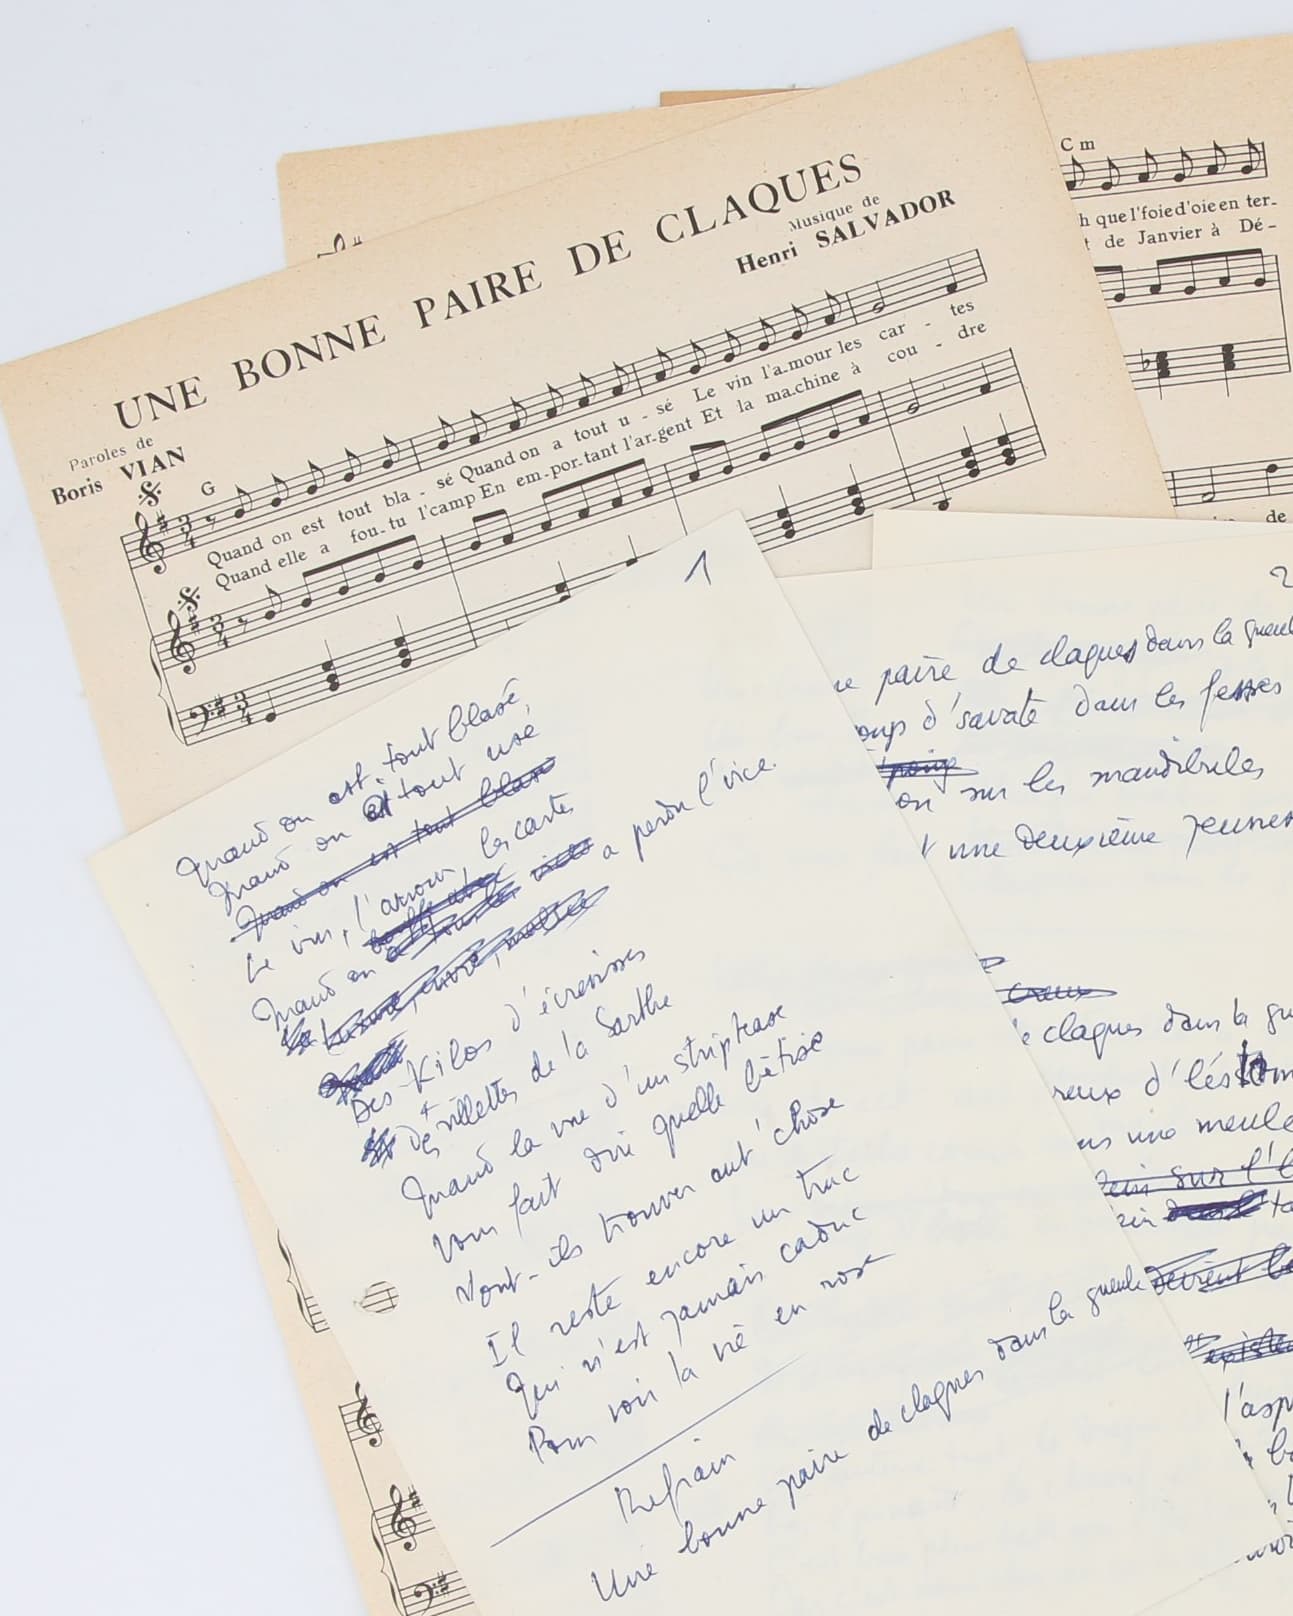 UNE BONNE PAIRE DE CLAQUES
Paroles de
Boris VIAN
Musique de
Henri SALVADOR
G
Quand on est tout bla - sé Quand on a tout u - sé Le vin l'a-mour les car - tes
Quand elle a fou-tu l'camp En em-por-tant l'ar-gent Et la ma-chine à cou - dre
C m
h que l'foie d'oie en ter-
t de Janvier à Dé-
de
1
Quand on est tout blasé,
Quand on a tout usé
Quand on est tout blasé
Le vin, l'amour, les cartes
Quand on a perdu l'vice
Des Kilos d'écrevisses
Des rillettes de la Sarthe
Quand la vue d'un striptease
Vous fait dire quelle bêtise
Vont-ils trouver aut' chose
Il reste encore un truc
Qui n'est jamais caduc
Pour voir la vie en rose
Refrain
Une bonne paire de claques dans la gueule
2
ne paire de claques dans la gueul
oup d'savate dans les fesses
poing
on sur les mandibules
t une deuxième jeuness
creux
e claques dans la gu
reux d'l'estom
ns une meule
sur l'
devient
l'asp